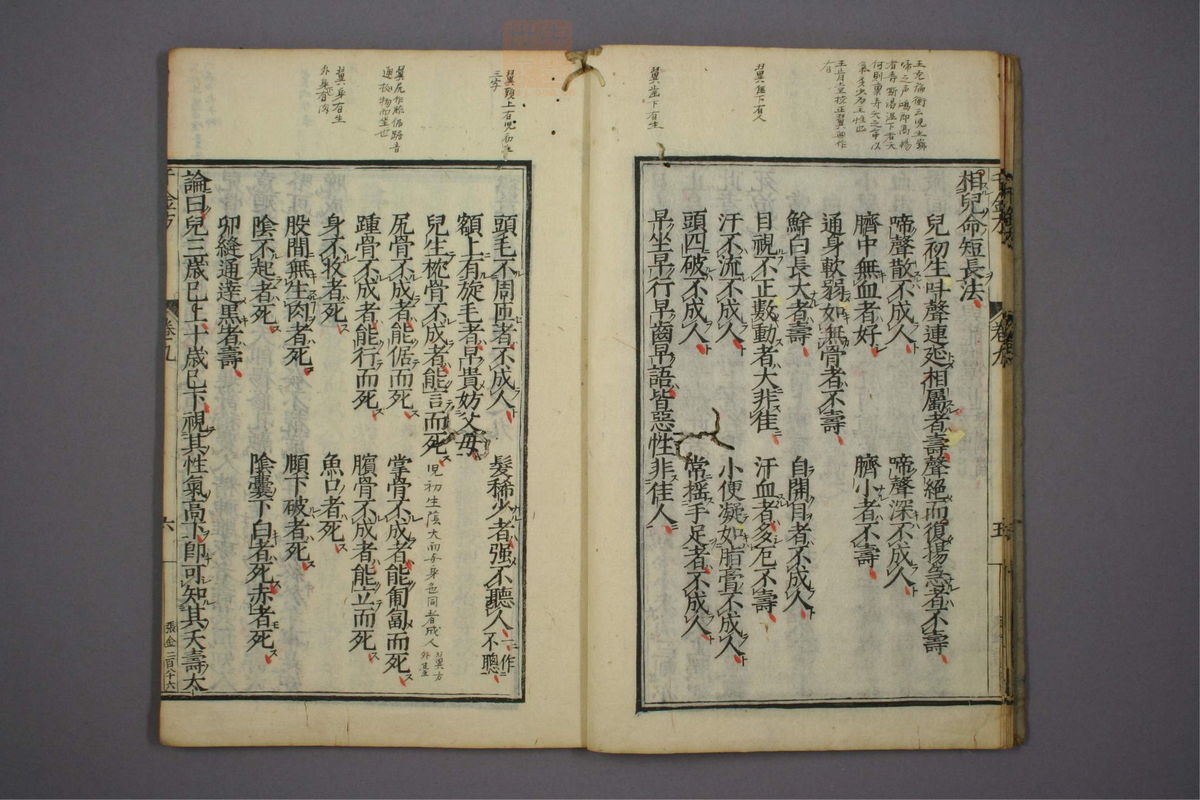 相兒命短長法
兒初生叫聲連延相屬者壽聲絕而復揚急者不壽
啼聲散不成人　啼聲深不成人
臍中無血者好　臍小者不壽
通身軟弱如無骨者不壽
鮮白長大者壽　自開目者不成人
目視不正數動者大非佳　汗血者多厄不壽
汗不流不成人　小便凝如脂膏不成人
頭四破不成人　常搖手足者不成人
早坐早行早齒早語皆惡性非佳人
卷九
五
頭毛不周匝者不成人　髮稀少者强不聽人一作不聰
額上有旋毛者早貴妨父母
兒生枕骨不成者能言而死　兒初生陰大而與身色同者成人
尻骨不成者能倨而死　掌骨不成者能匍匐而死
踵骨不成者能行而死　臏骨不成者能立而死
身不收者死　魚口者死
股間無生肉者死　頤下破者死
陰不起者死　陰囊下白者死赤者死
卵縫通達黑者壽
論曰兒三歲已上十歲已下視其性氣高下卽可知其夭壽大
千金方
卷九
六
翼當下有生
翼身有生